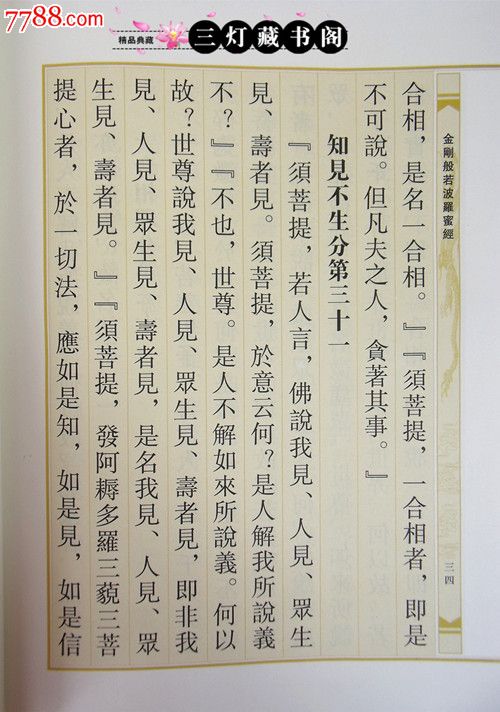 7788.com
精品典藏
三灯藏书阁
金剛般若波羅蜜經
三四
合相，是名一合相。』『須菩提，一合相者，即是
不可說。但凡夫之人，貪著其事。』
知見不生分第三十一
『須菩提，若人言，佛說我見、人見、眾生
見、壽者見。須菩提，於意云何？是人解我所說義
不？』『不也，世尊。是人不解如來所說義。何以
故？世尊說我見、人見、眾生見、壽者見，即非我
見、人見、眾生見、壽者見，是名我見、人見、眾
生見、壽者見。』『須菩提，發阿耨多羅三藐三菩
提心者，於一切法，應如是知，如是見，如是信